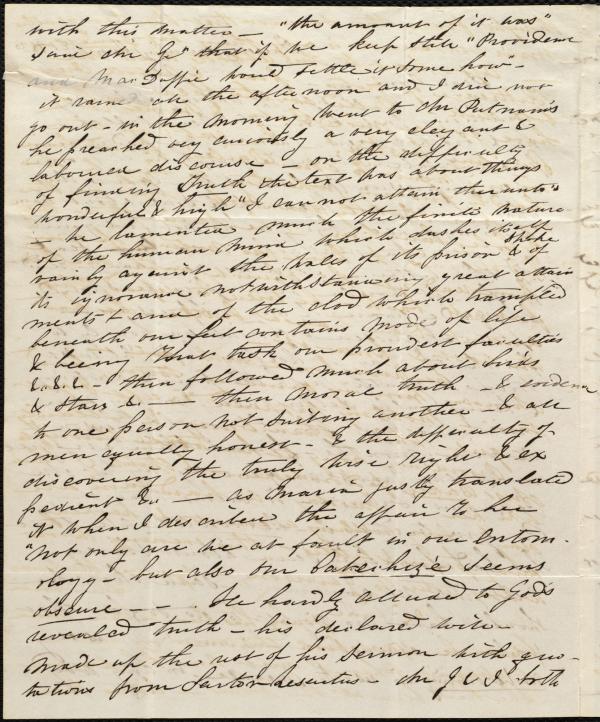 with this matter — "the amount of it was"
said Mr G. "that if we keep still "Providence
and MacDuffie would settle it some how" -
it rained all the afternoon and I did not
go out - in the morning went to Mr Putnam's
he preached very curiously a very elegant &
laboured discourse — on the difficulty
of finding Truth the text was about things
wonderful & high "I can not attain thereunto"
— he lamented much the finite nature
of the human mind which dashes itself
vainly against the walls of its prison & spoke of
its ignorance notwithstanding great attain
ments & and of the clod which trampled
beneath our feet contains modes of life
& being that task our proudest faculties
&. &. &. - then followed much about birds
& stars &. — then moral truth - & evidence
to one person not suiting another - & all
men equally honest - & the difficulty of
discovering the truly wise right & ex
pedient &c — as Maria justly translated
it when I described the affair to her
"Not only are we at fault in our entom-
ology - but also our catechize seems
obscure — - . He hardly alluded to Gods
revealed truth - his declared will -
made up the rest of his sermon with quo-
tations from Sartor resartus - Mr J & I both